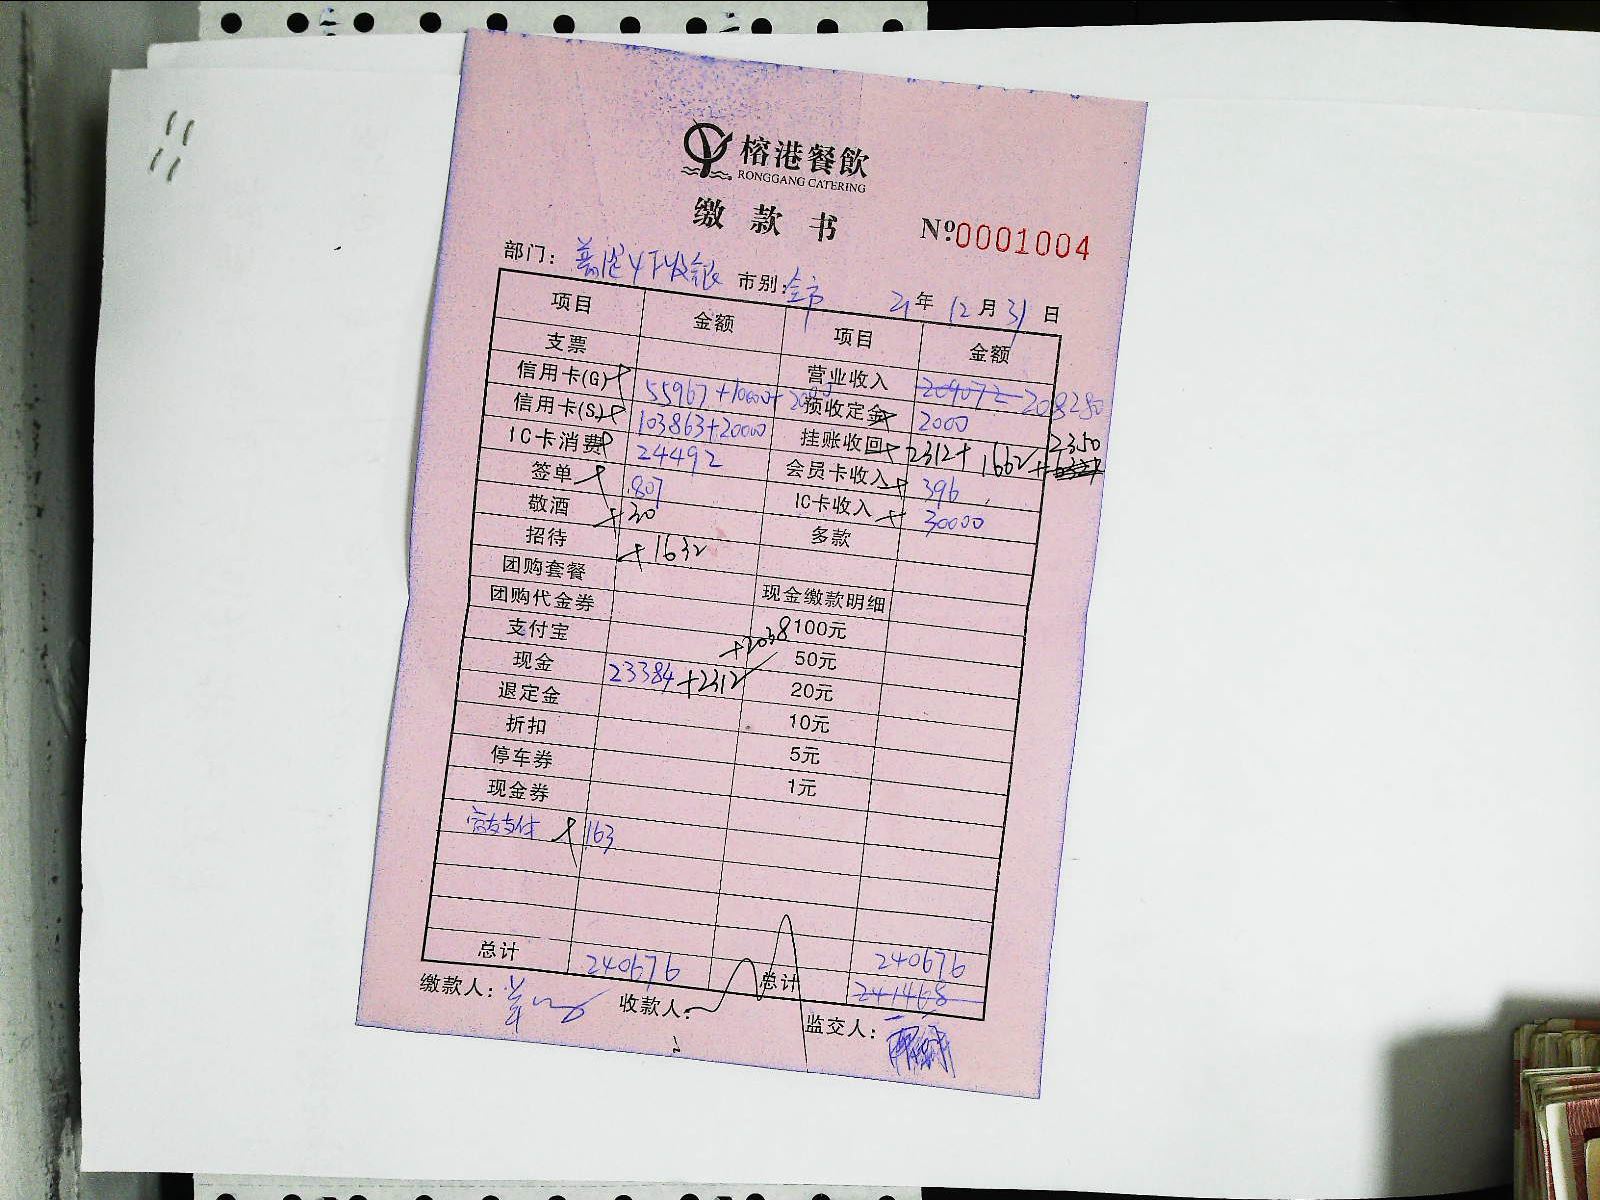 榕港餐飲
RONGGANG CATERING
缴款书
Nº 0001004
部门: 市别: 21年 12月 31日
项目 金额 项目 金额
支票 营业收入 204072 208280
信用卡(G) 55967+10000+2000 预收定金 2000
信用卡(S) 103863+20000 挂账收回 2312+1662+2350
IC卡消费 24492 会员卡收入 396
签单 807 IC卡收入 30000
敬酒 30 多款
招待 1632
团购套餐 现金缴款明细
团购代金券 100元
支付宝 +2038 50元
现金 23384+2312 20元
退定金 10元
折扣 5元
停车券 1元
现金券
163
总计 240676 总计 240676
241468
缴款人: 收款人: 监交人: